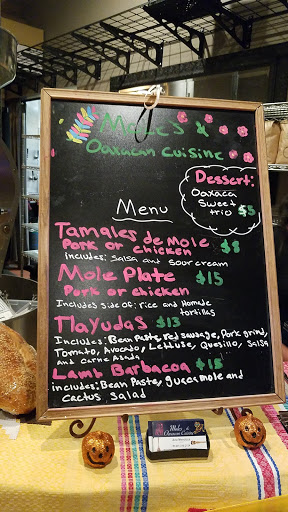 Mole's &
Oaxacan Cuisine
Dessert:
Oaxaca
Sweet
trio $5
Menu
Tamales de Mole
Pork or chicken $8
includes: Salsa and sour cream
Mole Plate $15
Pork or chicken
Includes side of: rice and Homade
tortillas
Tlayudas $13
Includes: Bean Paste, red sausage, Pork grind,
Tomato, Avocado, Lettuse, Quesillo, Salsa
and Carne Asada
Lamb Barbacoa $15
includes: Bean Paste, guacamole and
Cactus Salad
Moles &
Oaxacan Cuisine